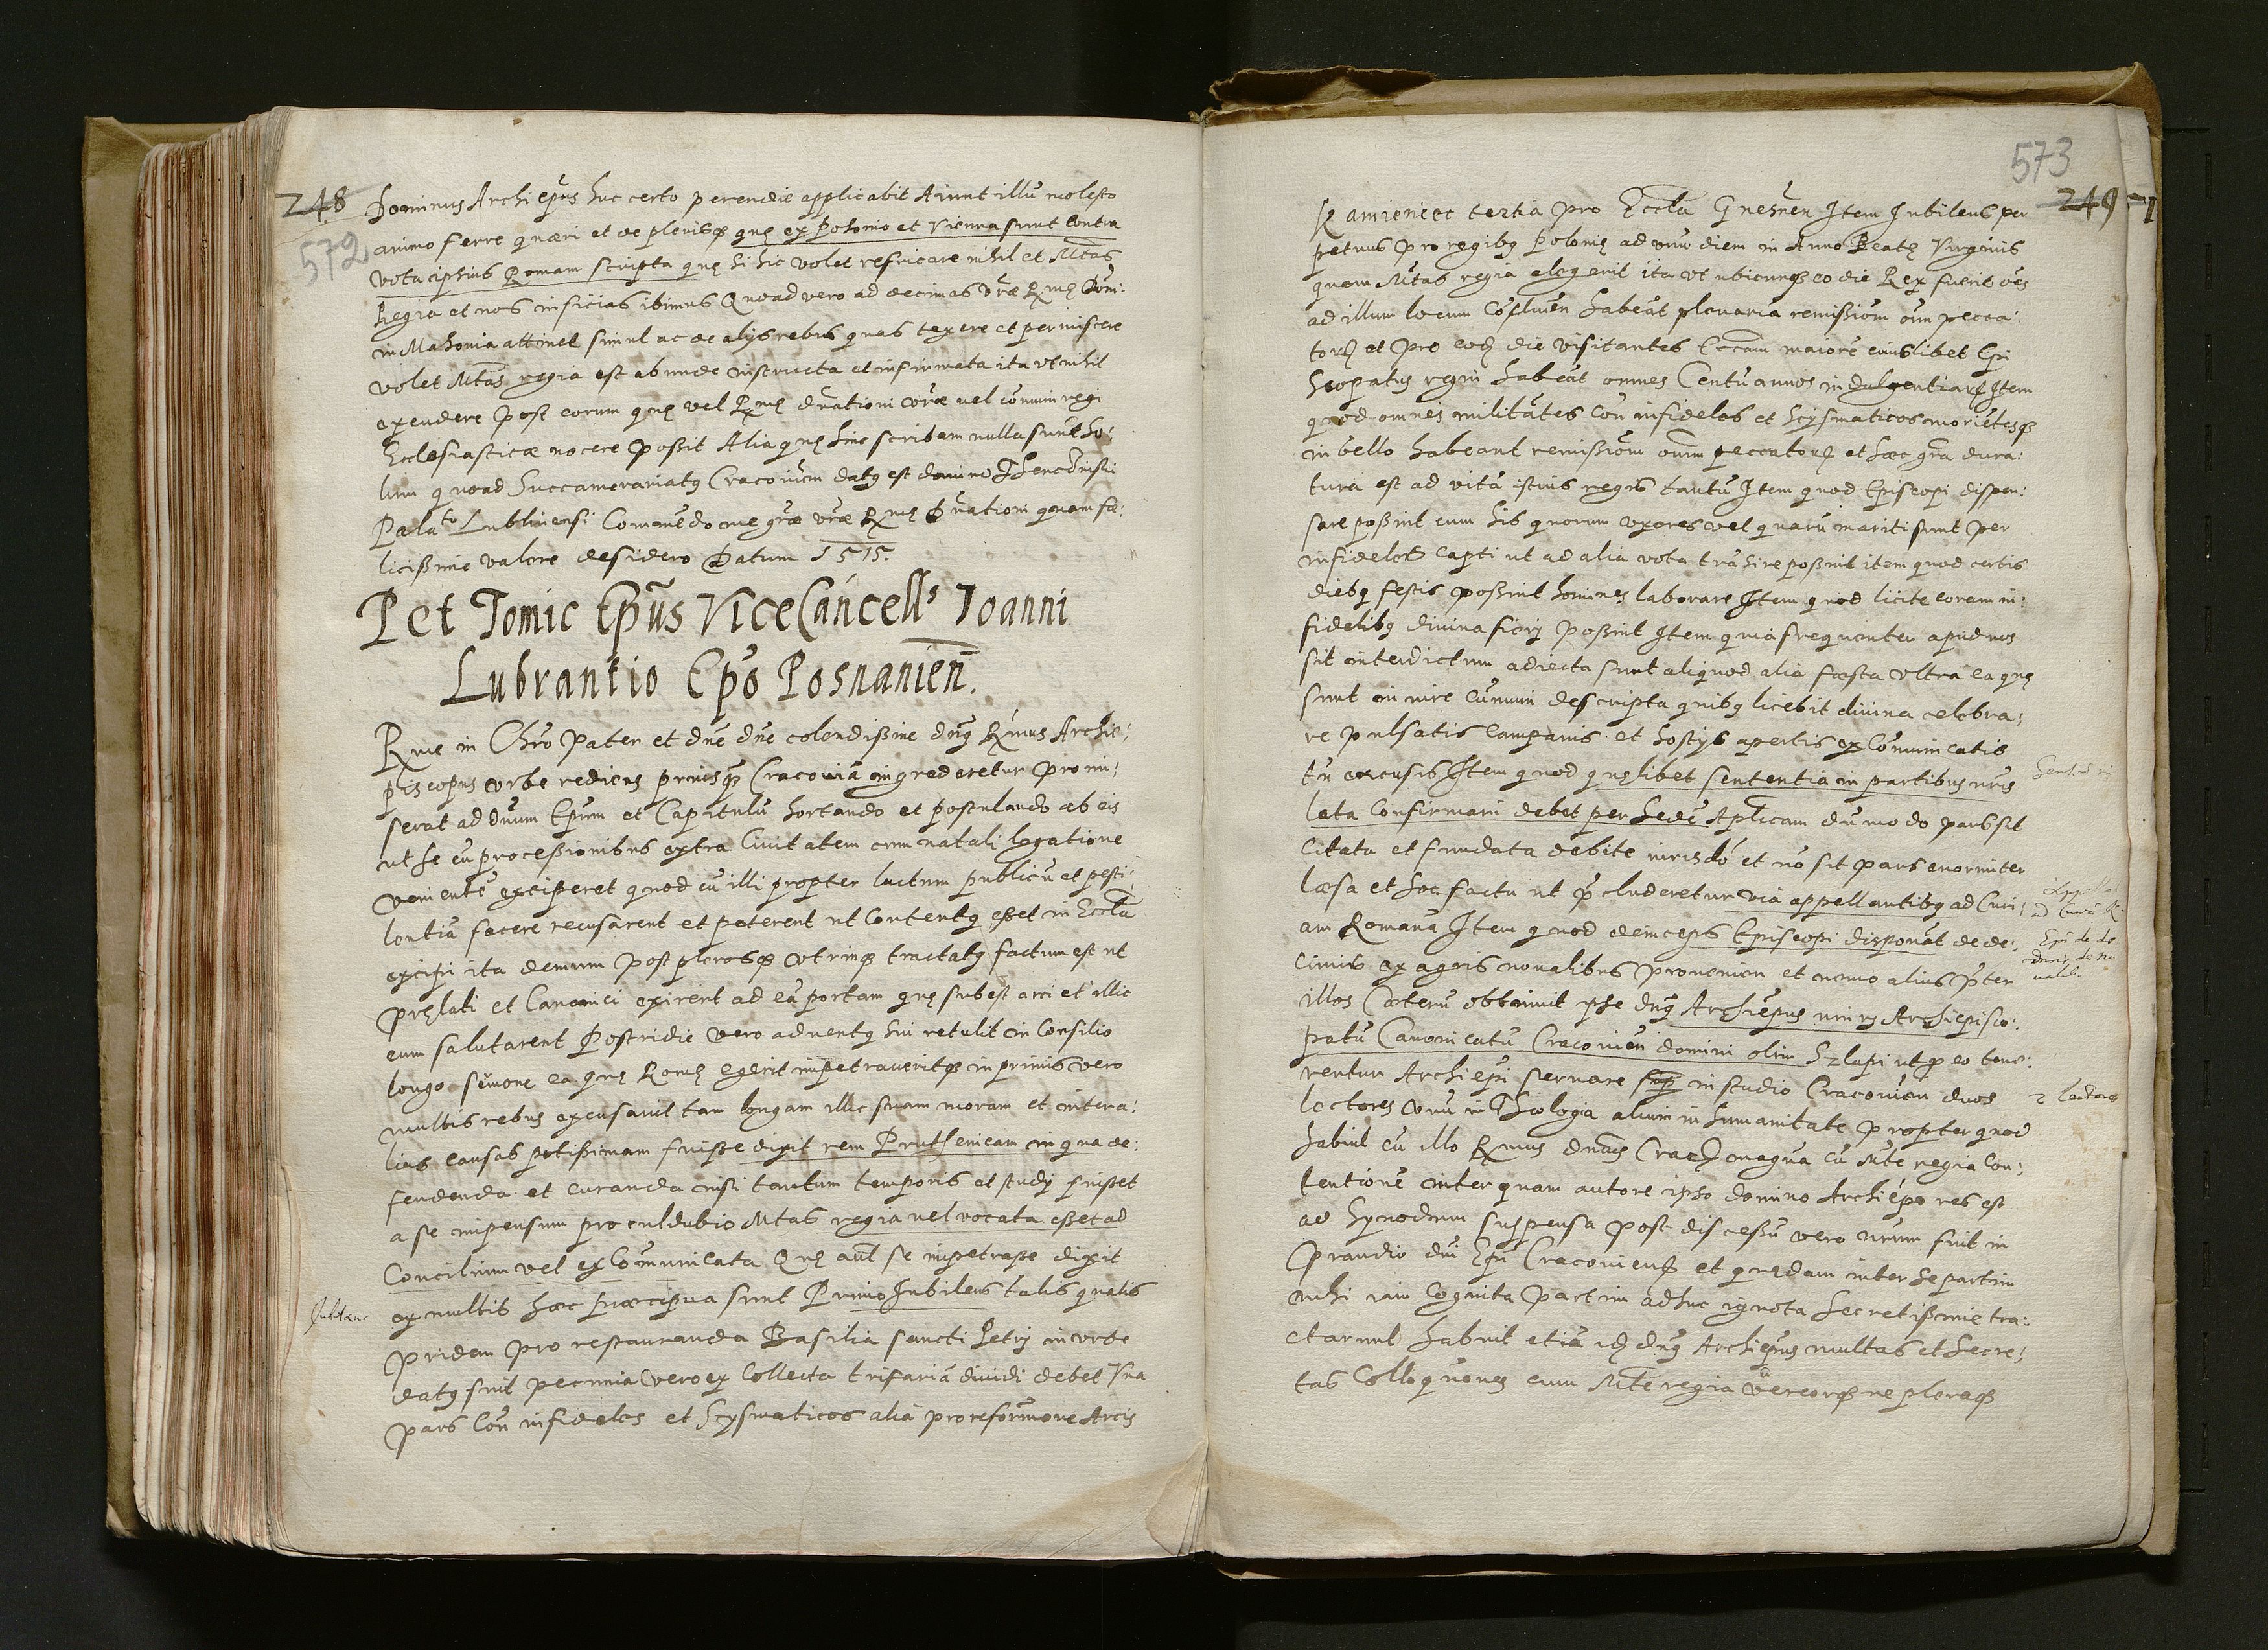 248
572
Dominus Archiepũs huc certo perendie applicabit Aiunt illũ molesto
animo ferre quæri et de plerisq₃ quę ex Posonio et Vienna sunt contra
vota ipsius Romam scripta quę si hic volet refricare nihil et Mtas
Regia et nos inficias ibimus Quoad vero ad decimas vræ Rmę Dom:
in Masonia attinet simul ac de alijs rebus quas texere et permiscere
volet Mtas regia est abunde instructa et informata ita ut nihil
expendere post eorum quę vel Rmę dnationi vræ vel cõmuni regi
Ecclesiasticæ nocere possit Alia quę hinc scribam nulla sunt so:
lum quoad Succamerariatq Cracovieñ datq est domino Thenczinski
Palatᵗᵒ Lublinensi Comendo me grae vræ Rmę Dnationi quam fœ:
licissime valere desidero Datum 1515.
Pet Tomic Epũs ViceCancellˢ Joanni
Lubrantio Epo Posnanien̄.
Rme in Chro Pater et dne dne colendissime dnq Rmus Archie:
piscopus urbe rediens priusq₃ Cracouiã ingrederetur promi:
serat ad Dnum Epum et Capitulũ hortando et postulando ab eis
ut se cũ processionibus extra Civitatem cum natali legatione
venientẽ exciperet quod cũ illi propter luctum publicũ et pesti:
lentiã facere recusarent et peterent ut contentq esset in Eccla
excipi ita demum post plerosq₃ utrinq₃ tractatq factum est ut
Pręlati et Canonici exirent ad eã portam quę subest arci et illic
eum salutarent Postridie vero aduentq sui retulit in Consilio
longo sermone ea quę Romę egerit impetraveritq₃ inprimis vero
multis rebus excusavit tam longam illic suam moram et inter a:
lias causas potissimam fuisse dixit rem Pruthenicam in qua de:
fendenda et curanda nisi tantum temporis et studij fuisset
a se impensum proculdubio Mtas regia vel vocata esset ad
Concilium vel excõmunicata Quę aut se impetrasse dixit
ex multis hæc præcipua sunt Primo Jubileus talis qualis
pridem pro restauranda Basilia sancti Petrj in urbe
datq fuit pecunia vero ex collecta trifariã dividi debet Una
pars coñ infideles et Scysmaticos alia pro reformone Arcis
573
249
Kamieniec tertia pro Eccla Gnesneñ Item Jubileus per
petuus pro regibq Polonię ad unũ diem in Anno Beatę Virginis
quem Mtas regia elegerit ita ut ubicunq₃ eo die Rex fuerit oẽs
ad illum locum cõfluen habeãt plenaria remissiom oĩm pecca:
torũ et pro eod̃ die visitantes Eccam maiorẽ cuiuslibet Epi
scopatus regni habeãt omnes Centũ annos indulgentiarũ Item
quod omnes militãtes coñ infideles et Scysmaticos moriẽtesq₃
in bello habeant remissiom omm peccatorũ et hæc gra dura:
tura est ad vitã istius regis tantũ Item quod Episcopi dispen:
sare possint cum his quorum uxores vel quarũ mariti sunt per
infideles capti ut ad alia vota trãsire possint item quod certis
diebq festis possint homines laborare Item quod licite coram in:
fidelibq divina fierj possint Item quia frequenter apud nos
sit interdictum adiecta sunt aliquod alia festa ultra ea quę
sunt in iure cõmuni descripta quibq licebit divina celebra:
re pulsatis campanis et hostijs apertis excõmunicatis
tñ exclusis Item quod quęlibet sententia in partibus nris
lata confirmari debet per Sedẽ Aplicam dũmodo pars sit
citata et fundata debite iurisdó et nõ sit pars enormiter
læsa et hoc factũ ut p̃cluderetur via appellantibq ad Curi:
am Romanã Item quod deinceps Episcopi disponãt de de:
cimis ex agris novalibus provenien et nemo alius p̃ter
illos Cæterũ obtinuit ipse dnq Archiepus uniri Archiepisco:
patũ Canonicatũ Cracovien domini olim Szlapi utq₃ eo tene:
rentur Archiepi servare in studio Cracovien duos
lectores unũ in Theologia alium in humanitate propter quod
habuit cũ illo Rmus dnus Crac̃ magnã cũ Mte regia con:
tentionẽ inter quam autore ipso domino Archiepo res est
ad Synodum suspensa post discessũ vero nrum fuit in
prandio dni Epi Cracovieñ et quędam inter se partim
mihi iam cognita partim adhuc ignota secretissime tra:
ctarunt habuit etiã id̃ dnq Archiepus multas et secre:
tas Colloquones cum Mte regia vereorq₃ ne pleraq₃
2 lectores